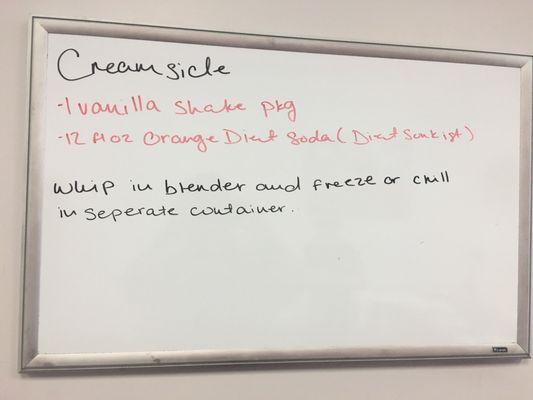 Creamsicle
-1 vanilla Shake pkg
-12 fl oz Orange Diet Soda (Diet Sunkist)
Whip in blender and freeze or chill
in seperate container.